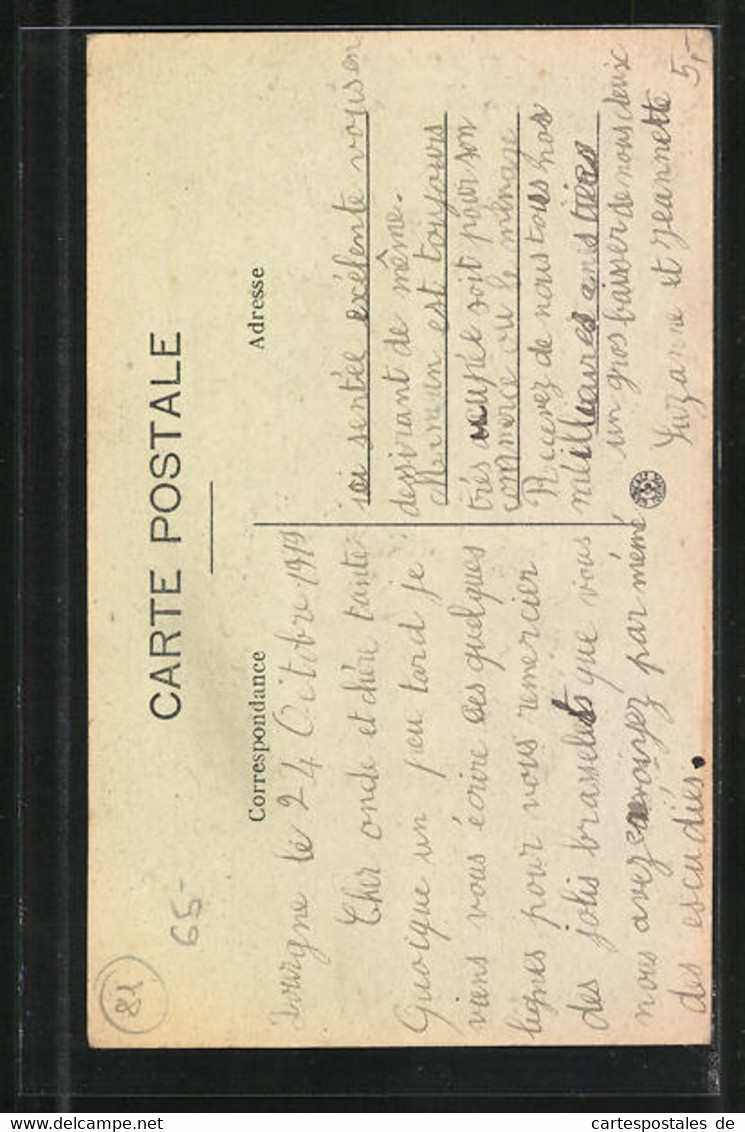 CARTE POSTALE
Correspondance
Adresse
81
65-
le 24 Octobre 1919
Cher oncle et chère tante
Quoique un peu tard je
viens vous écrire ses quelques
lignes pour vous remercier
des jolis brasselets que vous
nous avez par mémé
des escudiés.
ici sentée exélente vous en
dessirant de même.
Maman est toujours
très ocupée soit pour son
commerce ou le ménage
Recevez de nous tous nos
meilleures amistiées
un gros baisser de nous deux
Suzanne et Jeannette
5,-
www.delcampe.net
cartespostales de